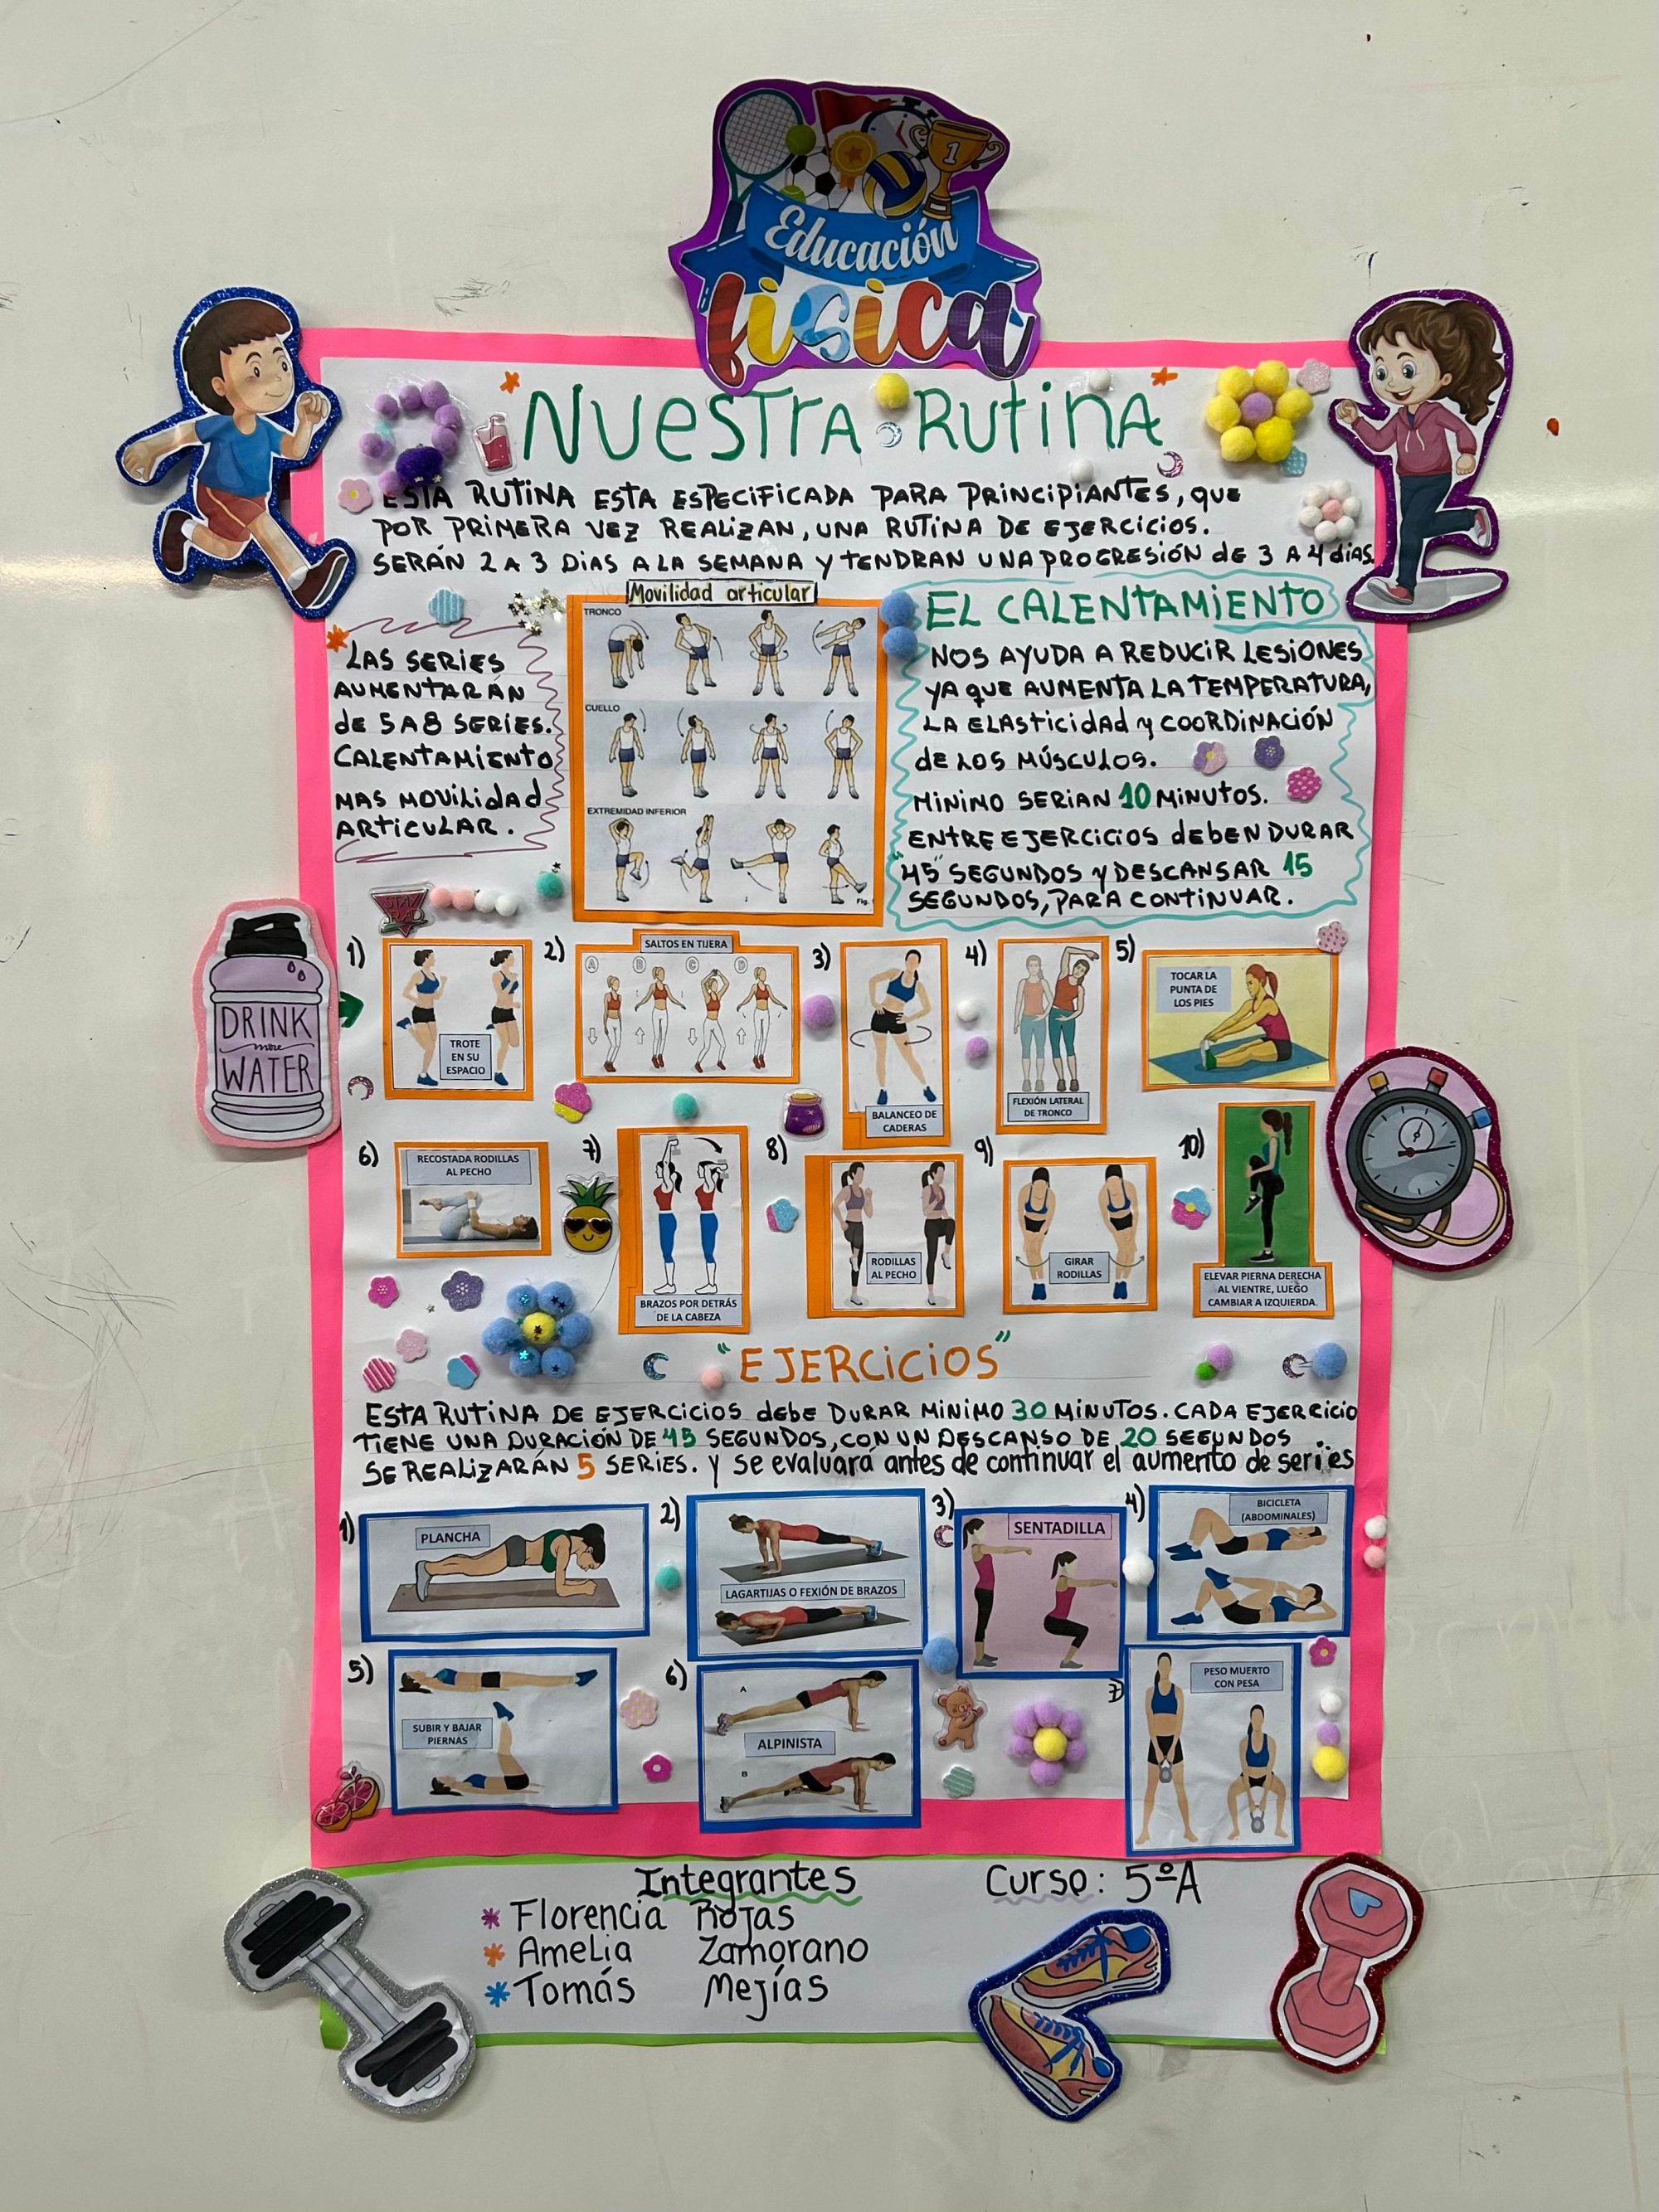 Educación
física
NUESTRA RUTINA
ESTA RUTINA ESTA ESPECIFICADA PARA PRINCIPIANTES, QUE
POR PRIMERA VEZ REALIZAN, UNA RUTINA DE EJERCICIOS.
SERÁN 2 A 3 DIAS A LA SEMANA Y TENDRAN UNA PROGRESIÓN de 3 A 4 dias.
LAS SERIES
AUMENTARÁN
de 5 A 8 SERIES.
CALENTAMIENTO
MAS MOVILIDAD
ARTICULAR.
Movilidad articular
TRONCO
CUELLO
EXTREMIDAD INFERIOR
Fig.
EL CALENTAMIENTO
NOS AYUDA A REDUCIR LESIONES
YA QUE AUMENTA LA TEMPERATURA,
LA ELASTICIDAD Y COORDINACIÓN
de LOS MÚSCULOS.
MINIMO SERIAN 10 MINUTOS.
ENTRE EJERCICIOS deBEN DURAR
"45" SEGUNDOS Y DESCANSAR 15
SEGUNDOS, PARA CONTINUAR.
STAY
RAD
DRINK
more
WATER
1)
TROTE
EN SU
ESPACIO
2)
SALTOS EN TIJERA
A B C D
3)
BALANCEO DE
CADERAS
4)
FLEXIÓN LATERAL
DE TRONCO
5)
TOCAR LA
PUNTA DE
LOS PIES
6)
RECOSTADA RODILLAS
AL PECHO
7)
BRAZOS POR DETRÁS
DE LA CABEZA
8)
RODILLAS
AL PECHO
9)
GIRAR
RODILLAS
10)
ELEVAR PIERNA DERECHA
AL VIENTRE, LUEGO
CAMBIAR A IZQUIERDA.
"EJERCICIOS"
ESTA RUTINA DE EJERCICIOS debe DURAR MINIMO 30 MINUTOS. CADA EJERCICIO
TIENE UNA DURACIÓN DE 45 SEGUNDOS, CON UN DESCANSO DE 20 SEGUNDOS
SE REALIZARÁN 5 SERIES. y se evaluará antes de continuar el aumento de series
1)
PLANCHA
2)
LAGARTIJAS O FEXIÓN DE BRAZOS
3)
SENTADILLA
4)
BICICLETA
(ABDOMINALES)
5)
SUBIR Y BAJAR
PIERNAS
6)
A
ALPINISTA
B
7)
PESO MUERTO
CON PESA
Integrantes
Curso: 5ºA
* Florencia Rojas
* Amelia Zamorano
* Tomás Mejías